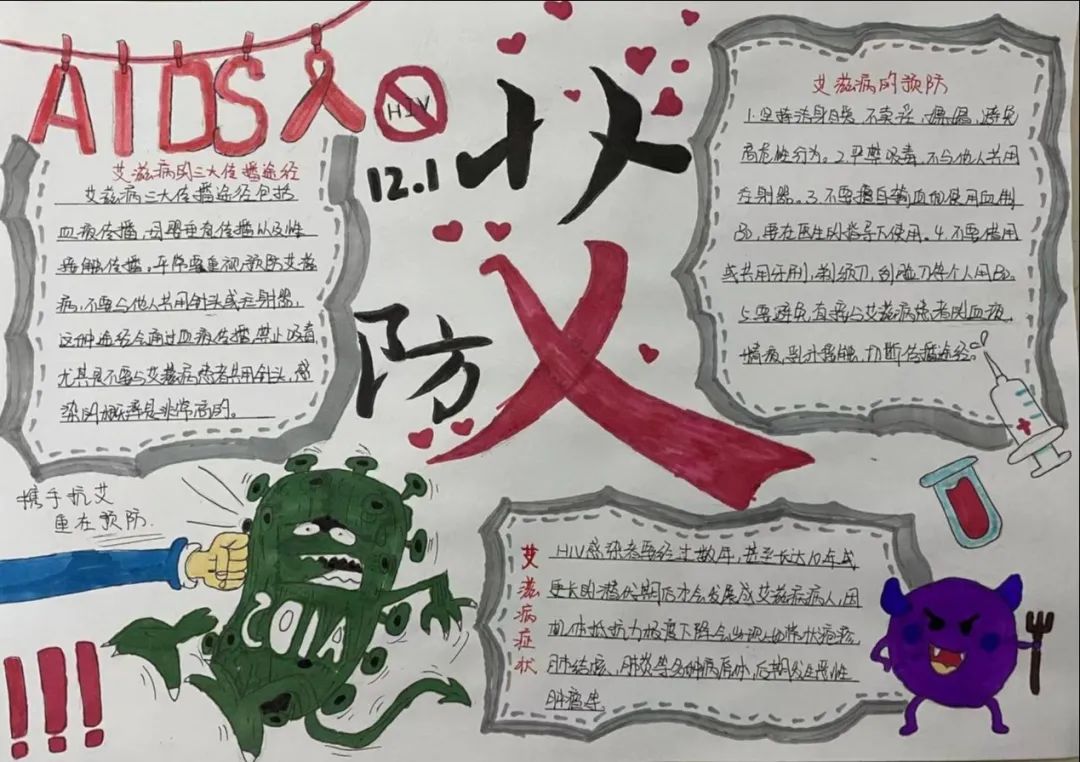 AIDS
HIV
12.1
防艾
艾滋病的三大传播途径
艾滋病三大传播途径包括
血液传播,母婴垂直传播以及性
接触传播。平常要重视预防艾滋
病,不要与他人共用针头或注射器,
这种途径会通过血液传播,禁止吸毒,
尤其是不要与艾滋病患者共用针头,感
染的概率是非常高的。
艾滋病的预防
1.坚持洁身自爱,不卖淫、嫖娼,避免
高危性行为。2.严禁吸毒,不与他人共用
注射器。3.不要擅自输血和使用血制
品,要在医生的指导下使用。4.不要借用
或共用牙刷,剃须刀,刮脸刀等个人用品。
5.要避免直接与艾滋病患者的血液,
精液,乳汁接触,切断传播途径。
携手抗艾
重在预防.
AIDS
!!!
艾滋病症状
HIV感染者要经过数年,甚至长达10年或
更长的潜伏期后才会发展成艾滋病病人,因
机体抵抗力极度下降会出现
肺结核、肺炎等多种病原体,后期发生恶性
肿瘤等